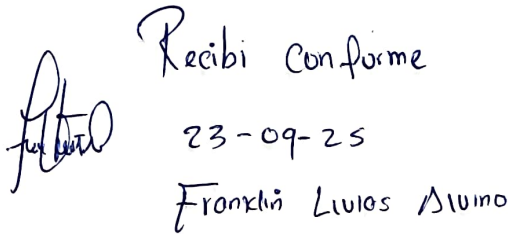 Recibi conforme
23-09-25
Franklin Livias Alvino